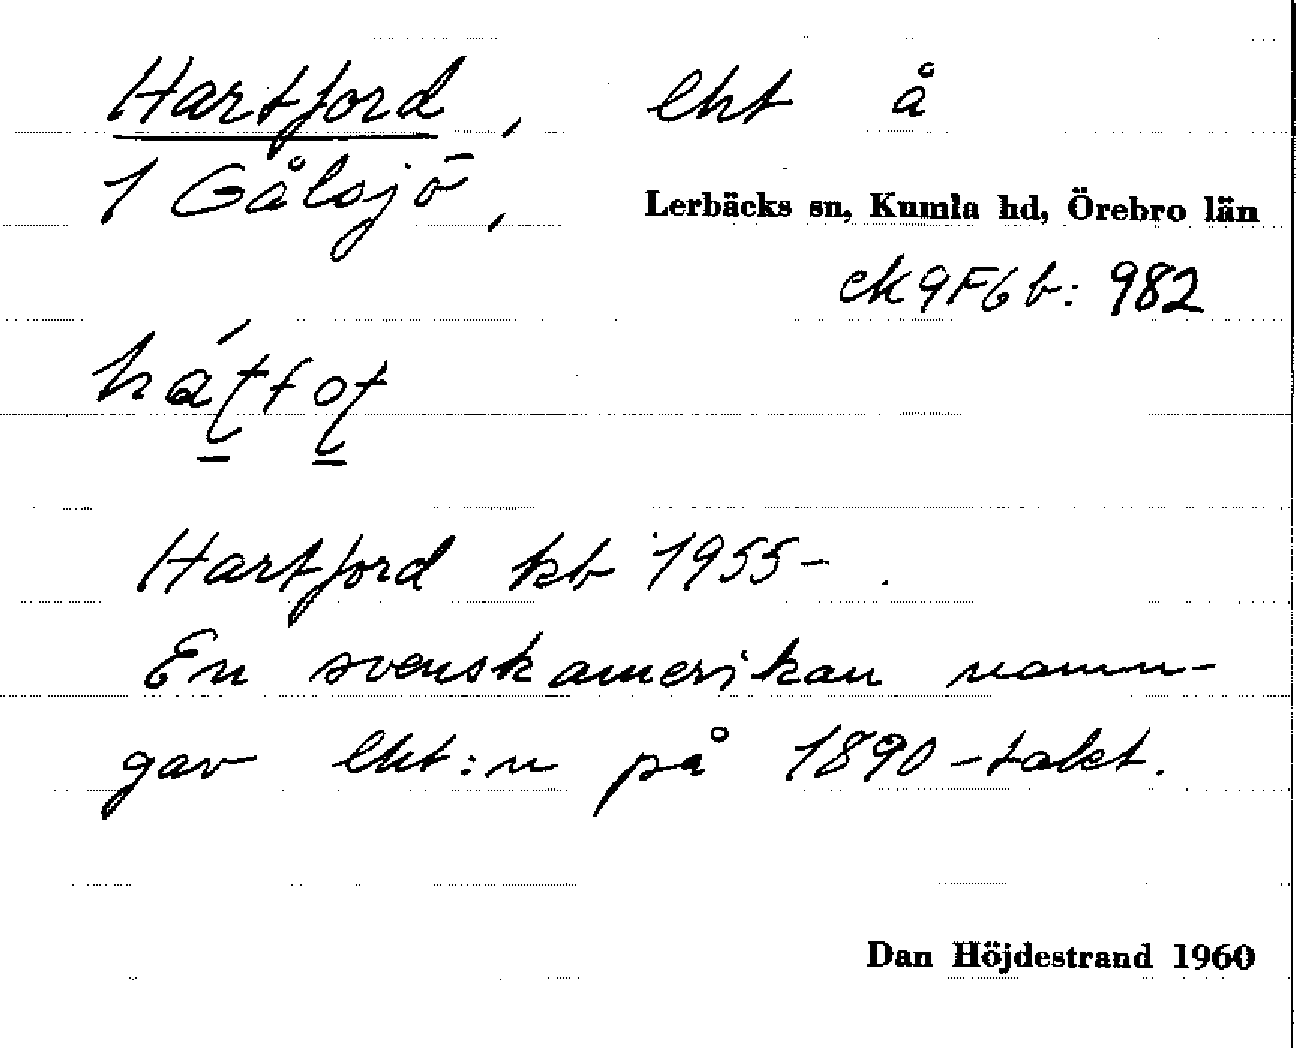 Hartford, lht å
1 Gålsjö,
Lerbäcks sn, Kumla hd, Örebro län
ek 9F6b: 982
Hartford kb 1955-.
En svenskamerikan namn-
gav lht:n på 1890-talet.
Dan Höjdestrand 1960